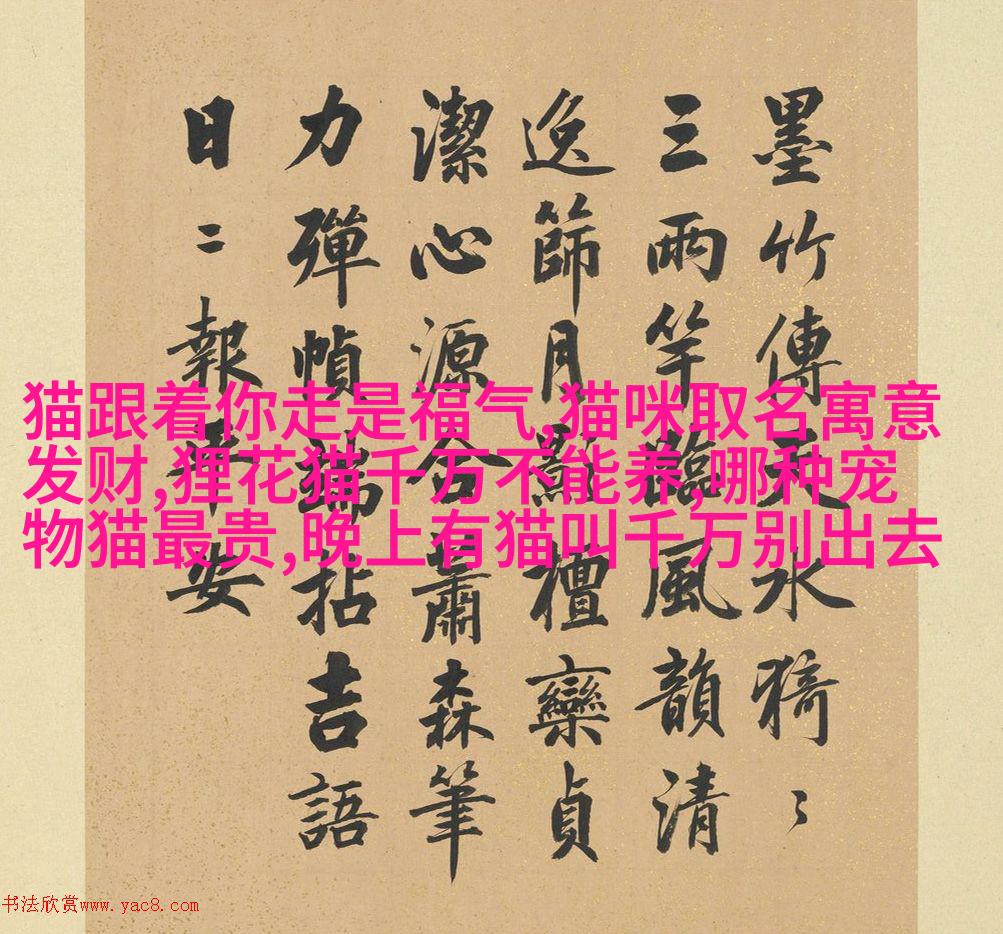 墨竹傳天水猗〻
三兩竿臨風韻清
逸篩月檀欒貞
潔心源合蕭森筆
力彈幀端拈吉語
日二報平安
猫跟着你走是福气,猫咪取名寓意
发财,狸花猫千万不能养,哪种宠
物猫最贵,晚上有猫叫千万别出去
书法欣赏www.yac8.com